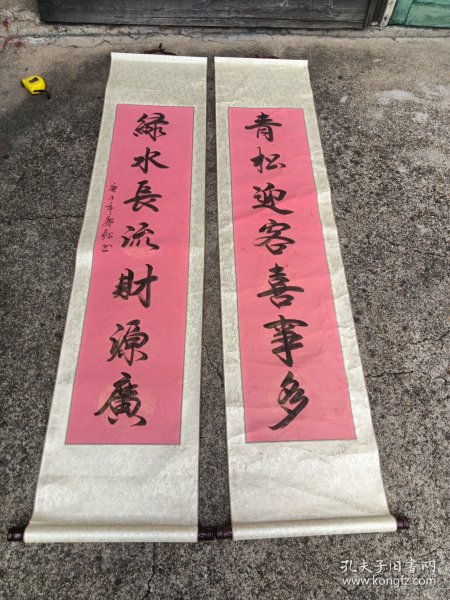 青松迎客喜事多
綠水長流財源廣
孔夫子旧书网
www.kongfz.com